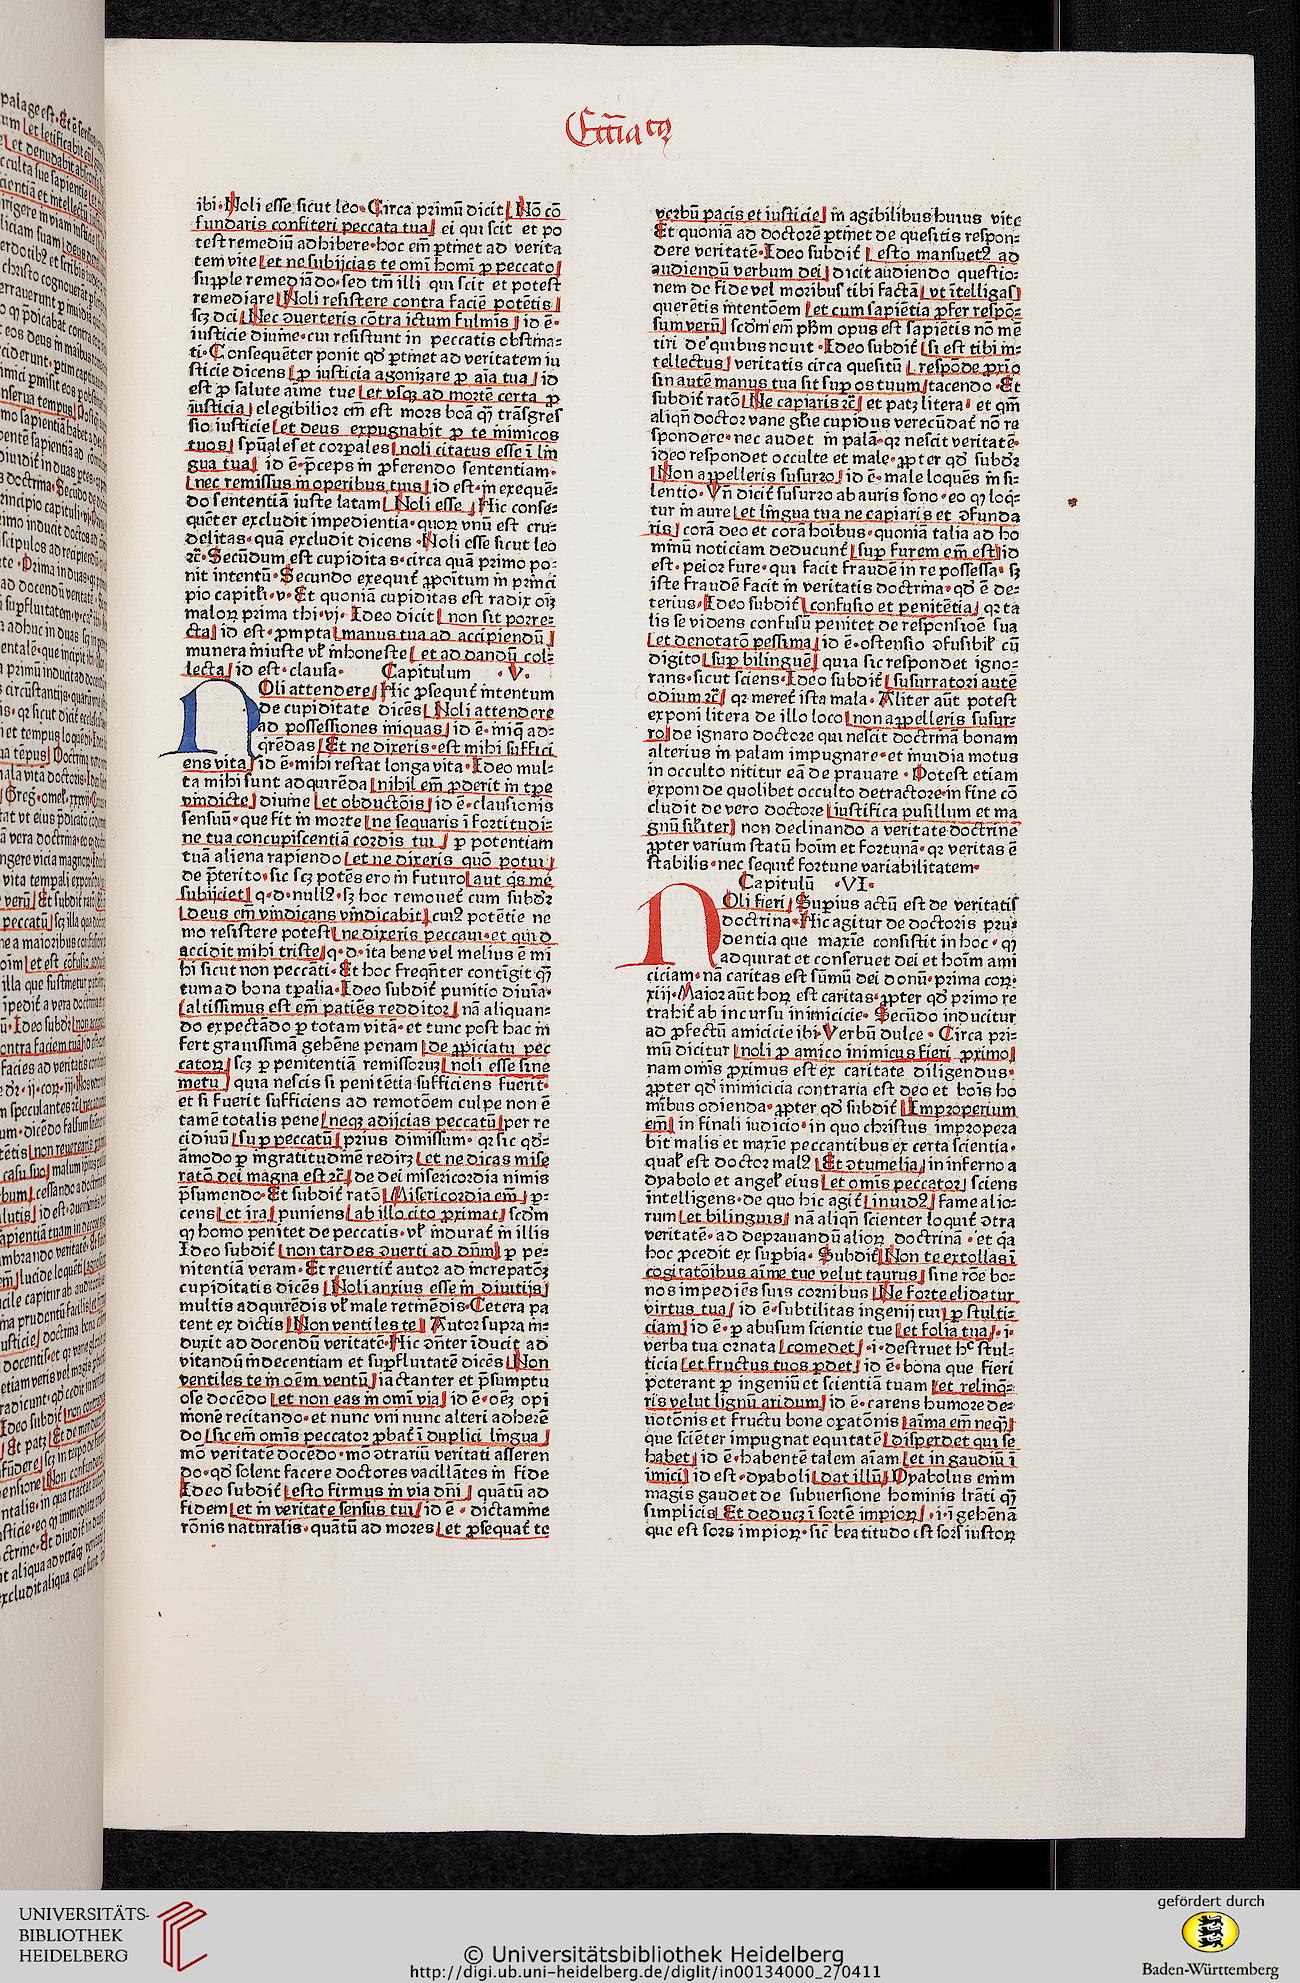 ibi·Noli esse sicut leo·Circa primū dicit Nō cō
fundaris confiteri peccata tua ei qui scit et po
test remediū adhibere·hoc em̄ ꝑtinet ad verita
tem vite et ne subijcias te omī homī ꝓ peccato
supple remediādo·sed tm̄ illi qui scit et potest
remediare Noli resistere contra faciē potētis
scꝫ dei Nec ꝯuerteris cōtra ictum fulmīs id ē·
iusticie diuine·cui resistunt in peccatis obstina-
ti·Consequēter ponit qd̄ ꝑtinet ad veritatem iu
sticie dicens ꝓ iusticia agonizare ꝓ aīa tua id
est ꝓ salute aīme tue et vsqꝫ ad mortē certa ꝓ
iusticia elegibilior em̄ est mors boā qꝫ trāsgres
sio iusticie et deus expugnabit ꝓ te inimicos
tuos spūales et corpales noli citatus esse ī lin
gua tua id ē·p̄ceps in ꝓferendo sententiam·
nec remissus in operibus tuis id est·in exequē-
do sententiā iuste latam Noli esse Hic conse-
quēter excludit impedientia·quoꝝ vnū est cru-
delitas·quā excludit dicens·Noli esse sicut leo
ꝛc̄·Secūdum est cupiditas·circa quā primo po-
nit intentū·Secundo exequit̄ ꝓpoītum in princi
pio capitl̄i·v·Et quoniā cupiditas est radix oīꝫ
maloꝝ prima thi·vj·Ideo dicit non sit porre-
cta id est·ꝓmpta manus tua ad accipiendū
munera iniuste vl̄ inhoneste et ad dandū col-
lecta id est·clausa· Capitulum ·V·
Noli attendere Hic ꝓsequit̄ intentum
de cupiditate dicēs Noli attendere
ad possessiones iniquas id ē·iniq̄ ad-
q̄redas Et ne dixeris·est mihi suffici
ens vita id ē·mihi restat longa vita·Ideo mul-
ta mihi sunt adquirēda nihil em̄ ꝓderit in tꝑe
vindicte diuine et obductōis id ē·clausionis
sensuū·que fit in morte ne sequaris ī fortitudi-
ne tua concupiscentiā cordis tui ꝑ potentiam
tuā aliena rapiendo et ne dixeris quō potui
de p̄terito·sic scꝫ potēs ero in futuro aut q̄s me
subijciet q·d·nullꝰ·sꝫ hoc remouet cum subdꝛ
deus em̄ vindicans vindicabit cuiꝰ potētie ne
mo resistere potest ne dixeris peccaui·et quid
accidit mihi triste q·d·ita bene vel melius ē mi
hi sicut non peccāti·Et hoc freqn̄ter contīgit qꝫ
tum ad bona tꝑalia·Ideo subdit punitio diuīa·
altissimus est em̄ patiēs redditor nā aliquan-
do expectādo ꝑ totam vitā·et tunc post hac in
fert grauissimā gehēne penam de ꝓpiciatu pec
catoꝝ scꝫ ꝑ penitentiā remissoruꝫ noli esse sine
metu quia nescis si penitētia sufficiens fuerit·
et si fuerit sufficiens ad remotōem culpe non ē
tamē totalis pene neqꝫ adijcias peccatū per re
cidiuū suꝑ peccatū prius dimissum·qꝛ sic qd̄-
āmodo ꝑ ingratitudinē redirꝫ et ne dicas mise
ratō dei magna est ꝛc̄ de dei misericordia nimis
p̄sumendo·Et subdit̄ ratō Misericordia em̄ ꝑ-
cens et ira puniens ab illo cito ꝓximat scd̄m
qꝫ homo penitet de peccatis·vl̄ indurat̄ in illis
Ideo subdit̄ non tardes ꝯuerti ad dn̄m ꝑ pe-
nitentiā veram·Et reuertit̄ autor ad increpatōꝫ
cupiditatis dicēs Noli anxius esse in diuitijs
multis adquirēdis vl̄ male retinēdis·Cetera pa
tent ex dictis Non ventiles te Autor supra in-
duxit ad docendū veritatē·Hic ꝯn̄ter īducit ad
vitandū indecentiam et suꝑfluitatē dicēs Non
ventiles te in oēm ventū iactanter et p̄sumptu
ose docēdo et non eas in omī via id ē·oēꝫ opi
nionē recitando·et nunc vni nunc alteri adherē
do sic em̄ omīs peccator ꝓbat̄ ī duplici lingua
mō veritatē docēdo·mō ꝯtrariū veritati asseren
do·qd̄ solent facere doctores vacillātes in fide
Ideo subdit̄ esto firmus in via dn̄i quātū ad
fidem et in veritate sensus tui id ē·dictamine
rōnis naturalis·quātū ad mores et ꝓsequat̄ te
verbū pacis et iusticie in agibilibus huius vite
Et quoniā ad doctorē ꝑtinet de quesitis respon-
dere veritatē·Ideo subdit̄ esto mansuetꝰ ad
audiendū verbum dei dicit audiendo questio-
nem de fide vel moribus tibi factā vt ītelligas
querētis intentōem et cum sapiētia ꝓfer respō-
sum verū scd̄m em̄ pb̄m opus est sapiētis nō mē
tiri de quibus nouit·Ideo subdit̄ si est tibi in-
tellectus veritatis circa quesitū respōde ꝓrio
sin autē manus tua sit suꝑ os tuum tacendo·Et
subdit ratō Ne capiaris ꝛc̄ et patꝫ litera·et qm̄
aliqn̄ doctor vane gl̄ie cupidus verecūdat̄ nō re
spondere·nec audet in palā·qꝛ nescit veritatē·
ideo respondet occulte et male·ꝓpter qd̄ subdꝛ
Non appelleris susurro id ē·male loquēs in si-
lentio·Vn̄ dicit̄ susurro ab auris sono·eo qꝫ loq̄-
tur in aure et lingua tua ne capiaris et ꝯfunda
ris corā deo et corā hoībus·quoniā talia ad ho
minū noticiam deducunt̄ suꝑ furem em̄ est id
est·peior fure·qui facit fraudē in re possessa·sꝫ
iste fraudē facit in veritatis doctrina·qd̄ ē de-
terius·Ideo subdit̄ confusio et penitētia qꝛ ta
lis se videns confusū penitet de responsioē sua
et denotatō pessima id ē·ostensio ꝯfusibil̄ cū
digito suꝑ bilinguē quia sic respondet igno-
rans·sicut sciens·Ideo subdit̄ susurratori autē
odium ꝛc̄ qꝛ meret̄ ista mala·Aliter aūt potest
exponi litera de illo loco non appelleris susur-
ro de ignaro doctore qui nescit doctrinā bonam
alterius in palam impugnare·et inuidia motus
in occulto nititur eā deprauare·Potest etiam
exponi de quolibet occulto detractore·in fine cō
cludit de vero doctore iustifica pusillum et ma
gnū sil̄iter non declinando a veritate doctrine
ꝓpter varium statū hoīm et fortunā·qꝛ veritas ē
stabilis·nec sequit̄ fortune variabilitatem·
Capitulū ·VI·
Noli fieri Supius actū est de veritatis
doctrina·Hic agitur de doctoris pru-
dentia que maxīe consistit in hoc·qꝫ
adquirat et conseruet dei et hoīm ami
ciciam·nā caritas est sūmū dei donū·prima coꝝ·
xiij·Maior aūt hoꝝ est caritas·ꝓpter qd̄ primo re
trahit̄ ab incursu inimicicie·Secūdo inducitur
ad ꝓfectū amicicie ibi·Verbū dulce·Circa pri-
mū dicitur noli ꝓ amico inimicus fieri ꝓximo
nam omīs ꝓximus est ex caritate diligendus·
ꝓpter qd̄ inimicicia contraria est deo et boīs ho
mībus odienda·ꝓpter qd̄ subdit̄ Improperium
em̄ in finali iudicio·in quo christus impropera
bit malis et maxīe peccantibus ex certa scientia·
qual̄ est doctor malꝰ Et ꝯtumelia in inferno a
dyabolo et angel̄ eius et omīs peccator sciens
intelligens·de quo hic agit̄ inuidꝰ fame alio-
rum et bilinguis nā aliqn̄ scienter loquit̄ ꝯtra
veritatē·ad deprauandū alioꝝ doctrinā·et q̄a
hoc ꝓcedit ex suꝑbia·Subdit̄ Non te extollas ī
cogitatōibus aīme tue velut taurus sine rōe bo-
nos impediēs suis cornibus Ne forte elidatur
virtus tua id ē·subtilitas ingenij tui ꝑ stulti-
ciam id ē·ꝑ abusum scientie tue et folia tua ·i·
verba tua ornata comedet ·i·destruet hᶜ stul-
ticia et fructus tuos ꝑdet id ē·bona que fieri
poterant ꝑ ingeniū et scientiā tuam et relinq̄-
ris velut lignū aridum id ē·carens humore de-
uotōnis et fructu bone oꝑatōnis aīma em̄ neq̄
que sciēter impugnat equitatē disperdet qui se
habet id ē·habentē talem aīam et in gaudiū ī
imici id est·dyaboli dat illū Dyabolus enim
magis gaudet de subuersione hominis lrāti qꝫ
simplicis Et deducꝫ ī sortē impioꝝ ·i·ī gehenā
que est sors impioꝝ·sic̄ beatitudo est sors iustoꝝ
UNIVERSITÄTS-
BIBLIOTHEK
HEIDELBERG
© Universitätsbibliothek Heidelberg
http://digi.ub.uni-heidelberg.de/diglit/in00134000_270411
gefördert durch
Baden-Württemberg